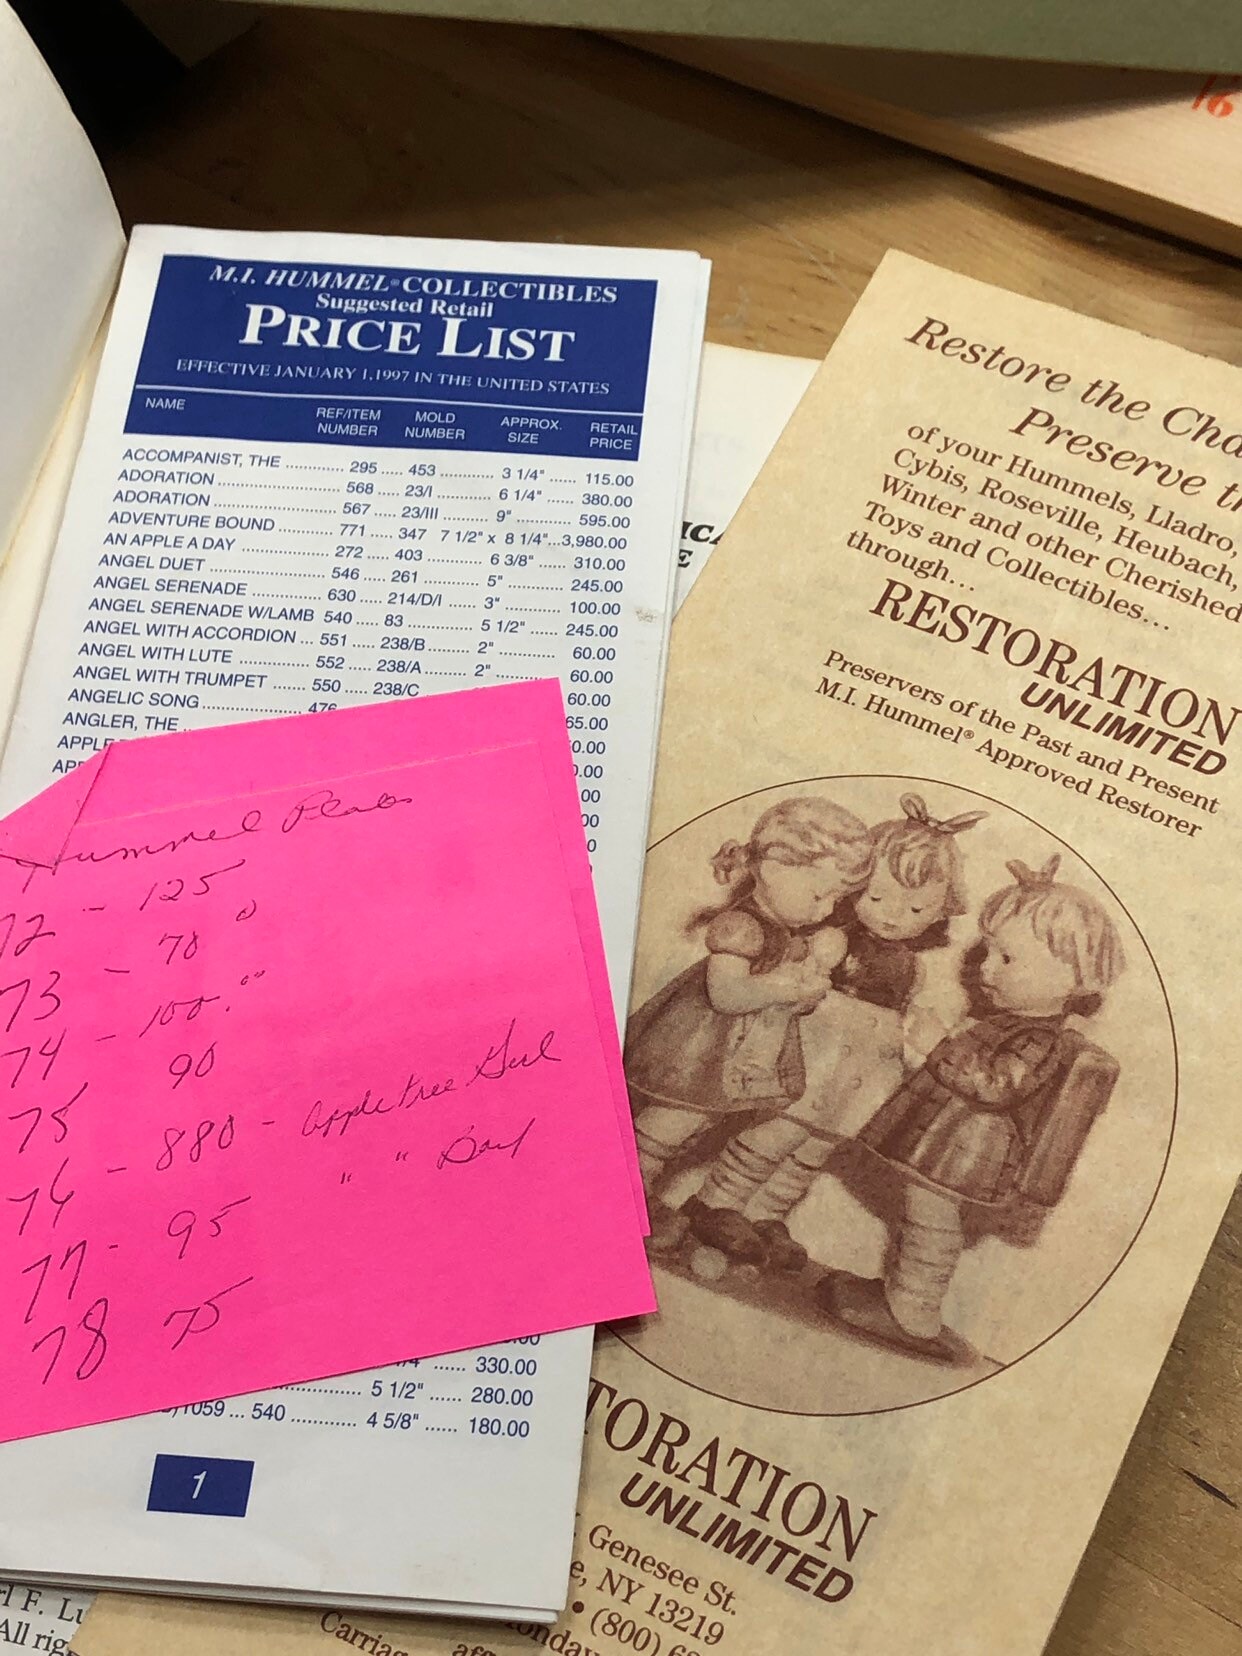 M.I. HUMMEL® COLLECTIBLES
Suggested Retail
PRICE LIST
EFFECTIVE JANUARY 1,1997 IN THE UNITED STATES
NAME REF/ITEM NUMBER MOLD NUMBER APPROX. SIZE RETAIL PRICE
ACCOMPANIST, THE ............ 295 ..... 453 ........... 3 1/4" ...... 115.00
ADORATION ....................... 568 ..... 23/I ........... 6 1/4" ...... 380.00
ADORATION ....................... 567 ..... 23/III ......... 9" ............ 595.00
ADVENTURE BOUND ........... 771 ..... 347 7 1/2" x 8 1/4"...3,980.00
AN APPLE A DAY ................. 272 ..... 403 ........... 6 3/8" ...... 310.00
ANGEL DUET ...................... 546 ..... 261 ........... 5" ............ 245.00
ANGEL SERENADE ............... 630 ..... 214/D/I ...... 3" ............ 100.00
ANGEL SERENADE W/LAMB 540 ..... 83 ............. 5 1/2" ...... 245.00
ANGEL WITH ACCORDION ... 551 ..... 238/B ........ 2" ............ 60.00
ANGEL WITH LUTE .............. 552 ..... 238/A ........ 2" ............ 60.00
ANGEL WITH TRUMPET ....... 550 ..... 238/C 60.00
ANGELIC SONG .................... 476 65.00
ANGLER, THE 0.00
APPLE .00
AP 00
00
Hummel Plates
72 - 125
73 - 70
74 - 100.00
75 90
76 - 880 - Apple tree Girl
77 - 95 " " Boy
78 75
.00
1/4" ...... 330.00
5 1/2" ...... 280.00
1059 ... 540 ............ 4 5/8" ...... 180.00
1
Restore the Cha
Preserve t
of your Hummels, Lladro,
Cybis, Roseville, Heubach,
Winter and other Cherished
Toys and Collectibles...
through...
RESTORATION
UNLIMITED
Preservers of the Past and Present
M.I. Hummel® Approved Restorer
TORATION
UNLIMITED
Genesee St.
e, NY 13219
• (800) 6
onday
Carriag
afte
rl F. Lu
All rig
ICA
E